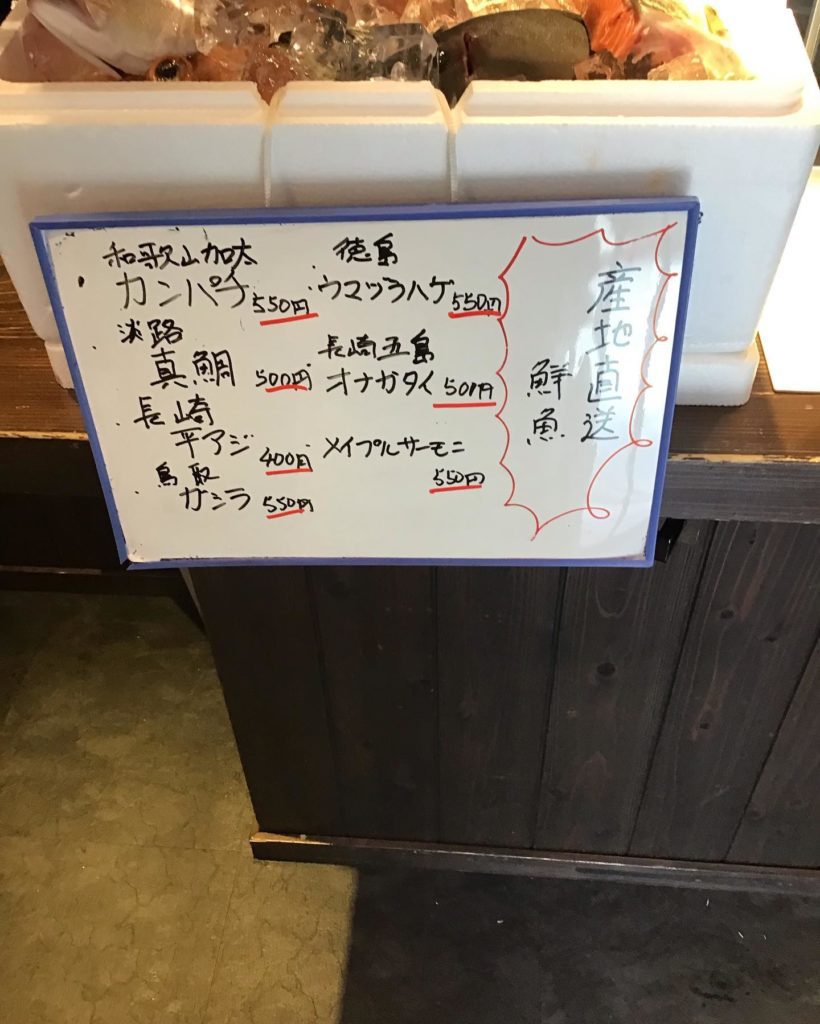 産地直送
鮮魚
和歌山加太
カンパチ 550円
淡路
真鯛 500円
長崎
平アジ 400円
鳥取
ガシラ 550円
徳島
ウマヅラハゲ 550円
長崎五島
オナガダイ 500円
メイプルサーモン
550円